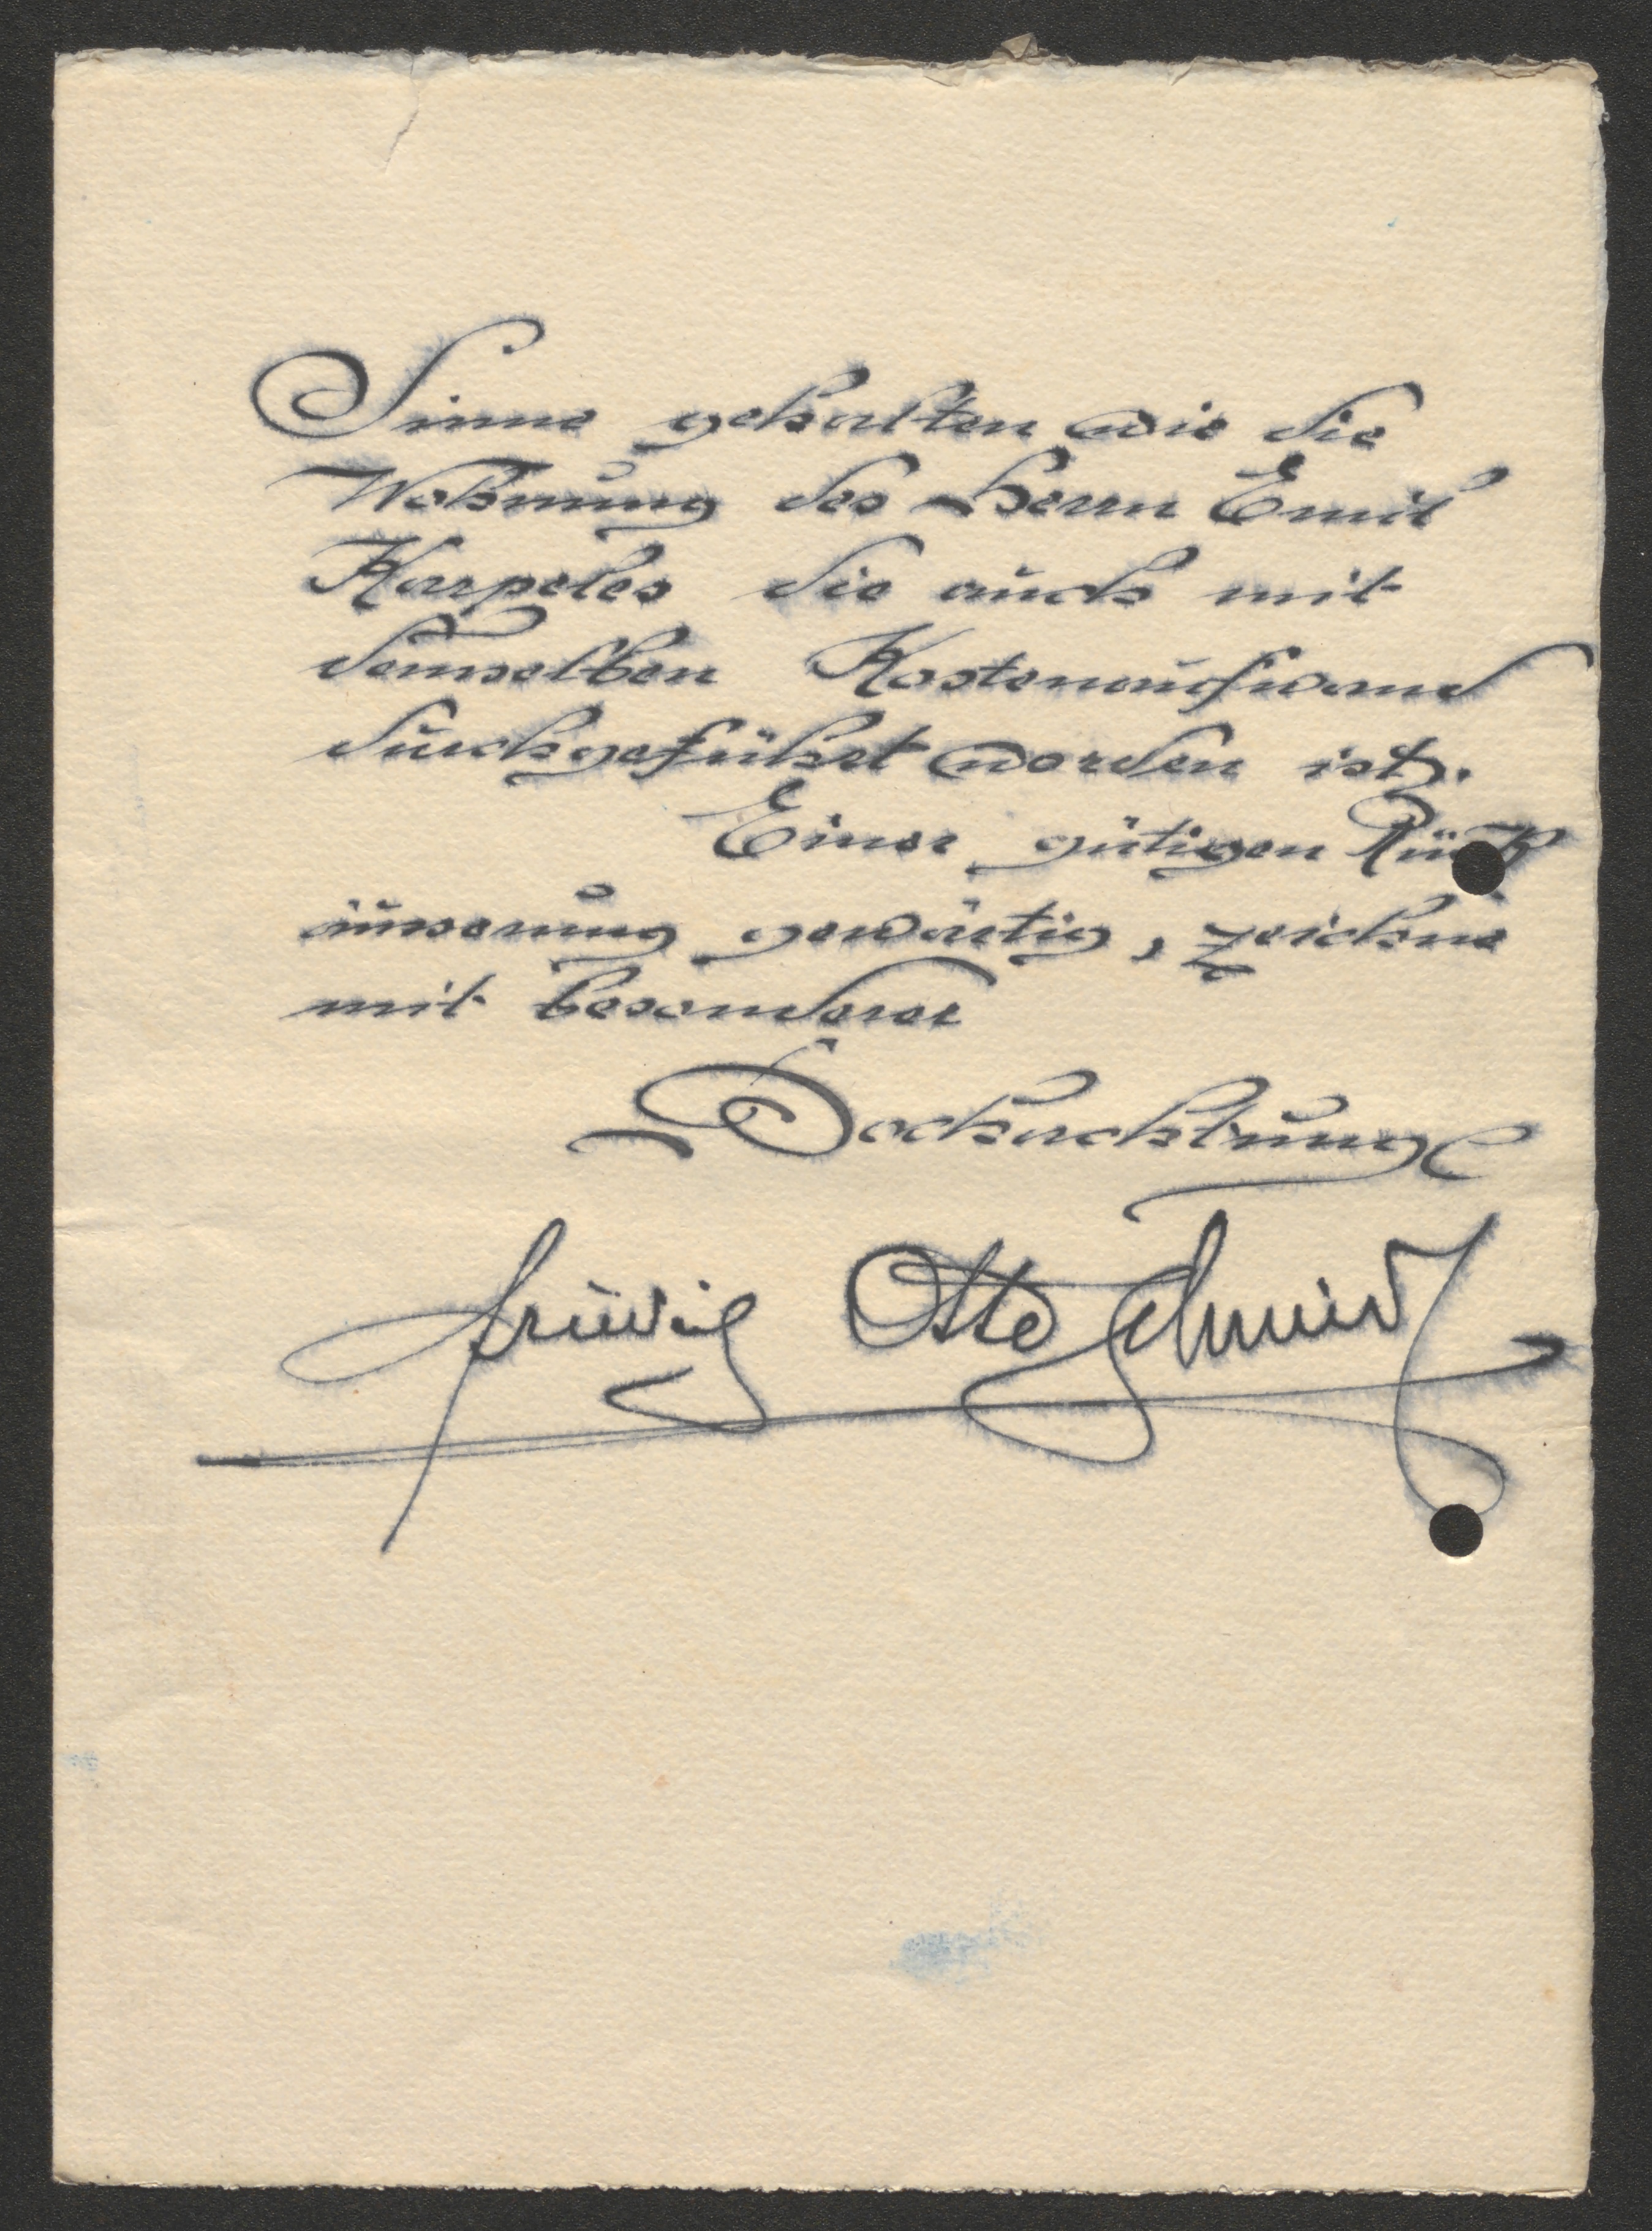 Sinne gehalten wie die
Wohnung des Herrn Emil
Karpeles die auch mit
demselben Kostenaufwand
durchgeführt worden ist.
Einer gütigen Rück
äusserung gewärtig, zeichne
mit besonderer
Hochachtung
Otto Schmid